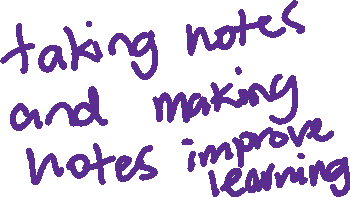 taking notes
and making
notes improve
learning